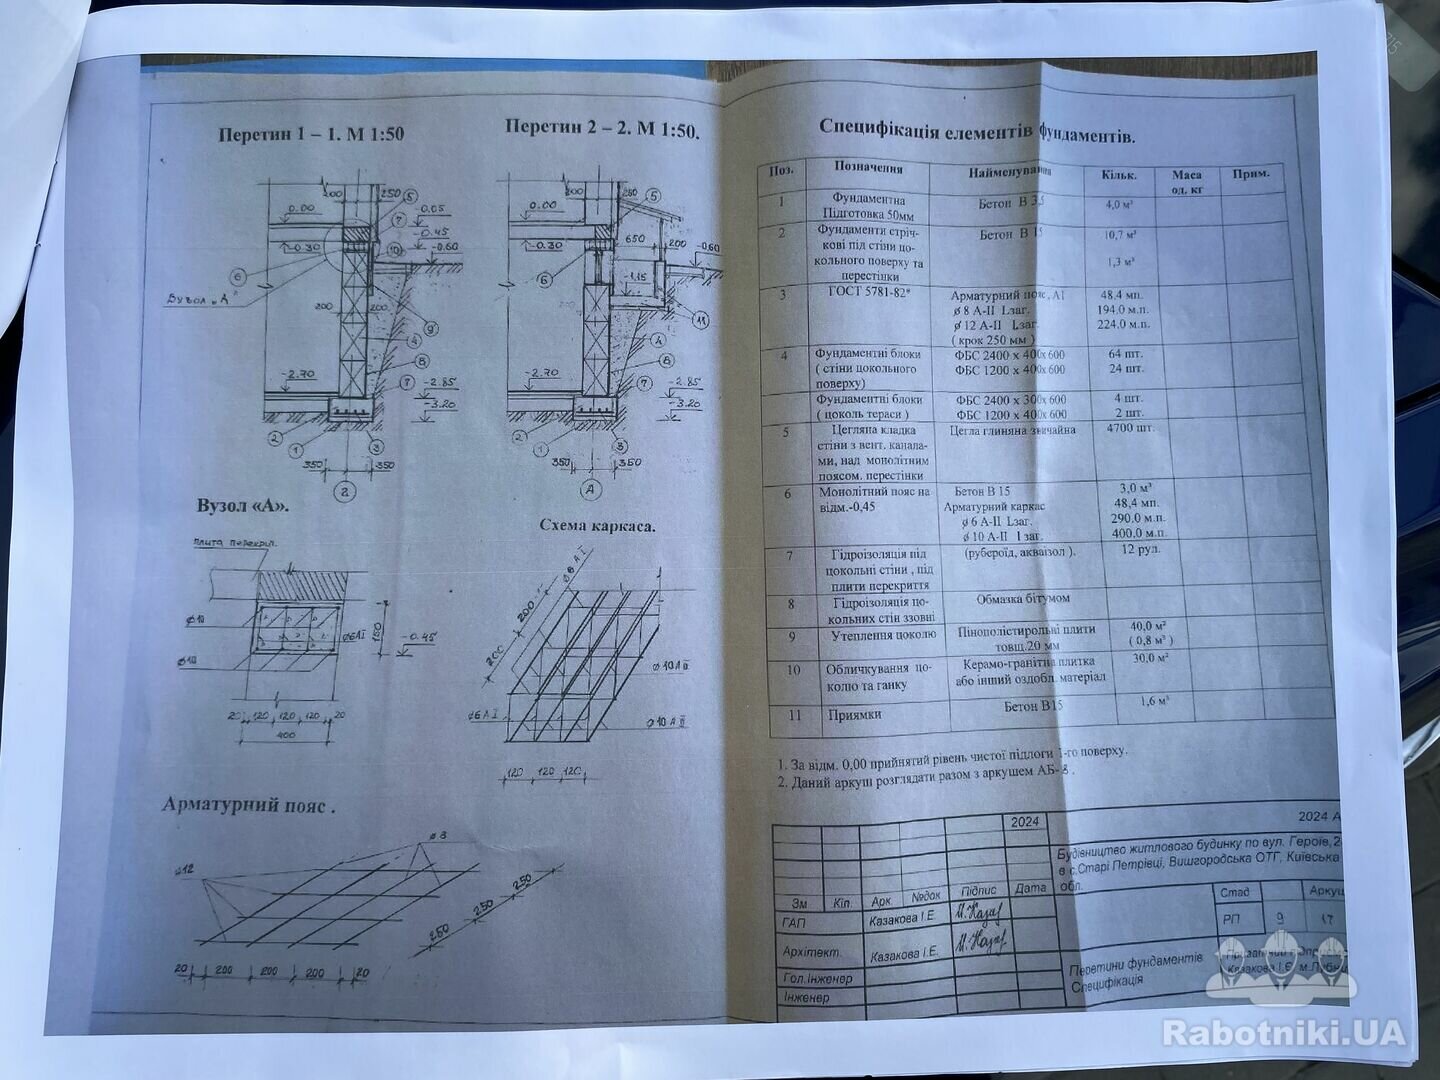 Перетин 1 – 1. М 1:50
Перетин 2 – 2. М 1:50.
200
250
5
0.00
-0.05
7
-0.45
-0.30
10
-0.60
6
Вузол „А"
200
200
9
4
8
-2.70
7
-2.85
-3.20
2
1
3
350
350
2
200
250
5
0.00
-0.30
650
200
-0.60
6
-1.15
11
4
8
-2.70
7
-2.85
-3.20
2
1
3
350
350
Д
Вузол «А».
плита перекрит.
ø10
ø6АІ
150
-0.45
ø10
20
120
120
120
20
400
Схема каркаса.
ø6АІ
200
200
ø10АІІ
ø6АІ
ø10АІІ
120
120
120
Арматурний пояс .
ø8
ø12
250
250
250
20
200
200
200
20
Специфікація елементів фундаментів.
Поз.
Позначення
Найменування
Кільк.
Маса
од. кг
Прим.
1
Фундаментна
Підготовка 50мм
Бетон В 3,5
4,0 м³
2
Фундаменти стріч-
кові під стіни цо-
кольного поверху та
перестінки
Бетон В 15
10,7 м³
1,3 м³
3
ГОСТ 5781-82*
Арматурний пояс, А1
ø 8 А-ІІ Lзаг.
ø 12 А-ІІ Lзаг.
( крок 250 мм )
48,4 мп.
194.0 м.п.
224.0 м.п.
4
Фундаментні блоки
( стіни цокольного
поверху)
ФБС 2400 х 400х 600
ФБС 1200 х 400х 600
64 шт.
24 шт.
Фундаментні блоки
( цоколь тераси )
ФБС 2400 х 300х 600
ФБС 1200 х 400х 600
4 шт.
2 шт.
5
Цегляна кладка
стіни з вент. канала-
ми, над монолітним
поясом. перестінки
Цегла глиняна звичайна
4700 шт.
6
Монолітний пояс на
відм.-0,45
Бетон В 15
Арматурний каркас
ø 6 А-ІІ Lзаг.
ø 10 А-ІІ Lзаг.
3,0 м³
48,4 мп.
290.0 м.п.
400.0 м.п.
7
Гідроізоляція під
цокольні стіни , під
плити перекриття
(рубероїд, акваізол ).
12 рул.
8
Гідроізоляція цо-
кольних стін ззовні
Обмазка бітумом
9
Утеплення цоколю
Пінополістирольні плити
товщ.20 мм
40,0 м²
( 0,8 м³ )
10
Обличкування цо-
колю та ганку
Керамо-гранітна плитка
або інший оздобл. матеріал
30,0 м²
11
Приямки
Бетон В15
1,6 м³
1. За відм. 0,00 прийнятий рівень чистої підлоги 1-го поверху.
2. Даний аркуш розглядати разом з аркушем АБ-8 .
2024
2024 А
Будівництво житлового будинку по вул. Героїв,2
в с.Старі Петрівці, Вишгородська ОТГ, Київська
обл.
Зм
Кіл.
Арк
№док
Підпис
Дата
ГАП
Казакова І.Е.
Архітект.
Казакова І.Е.
Гол.Інженер
Інженер
Стад
Аркуш
РП
9
17
Перетини фундаментів
Специфікація
Казакова І.Є.
Rabotniki.UA